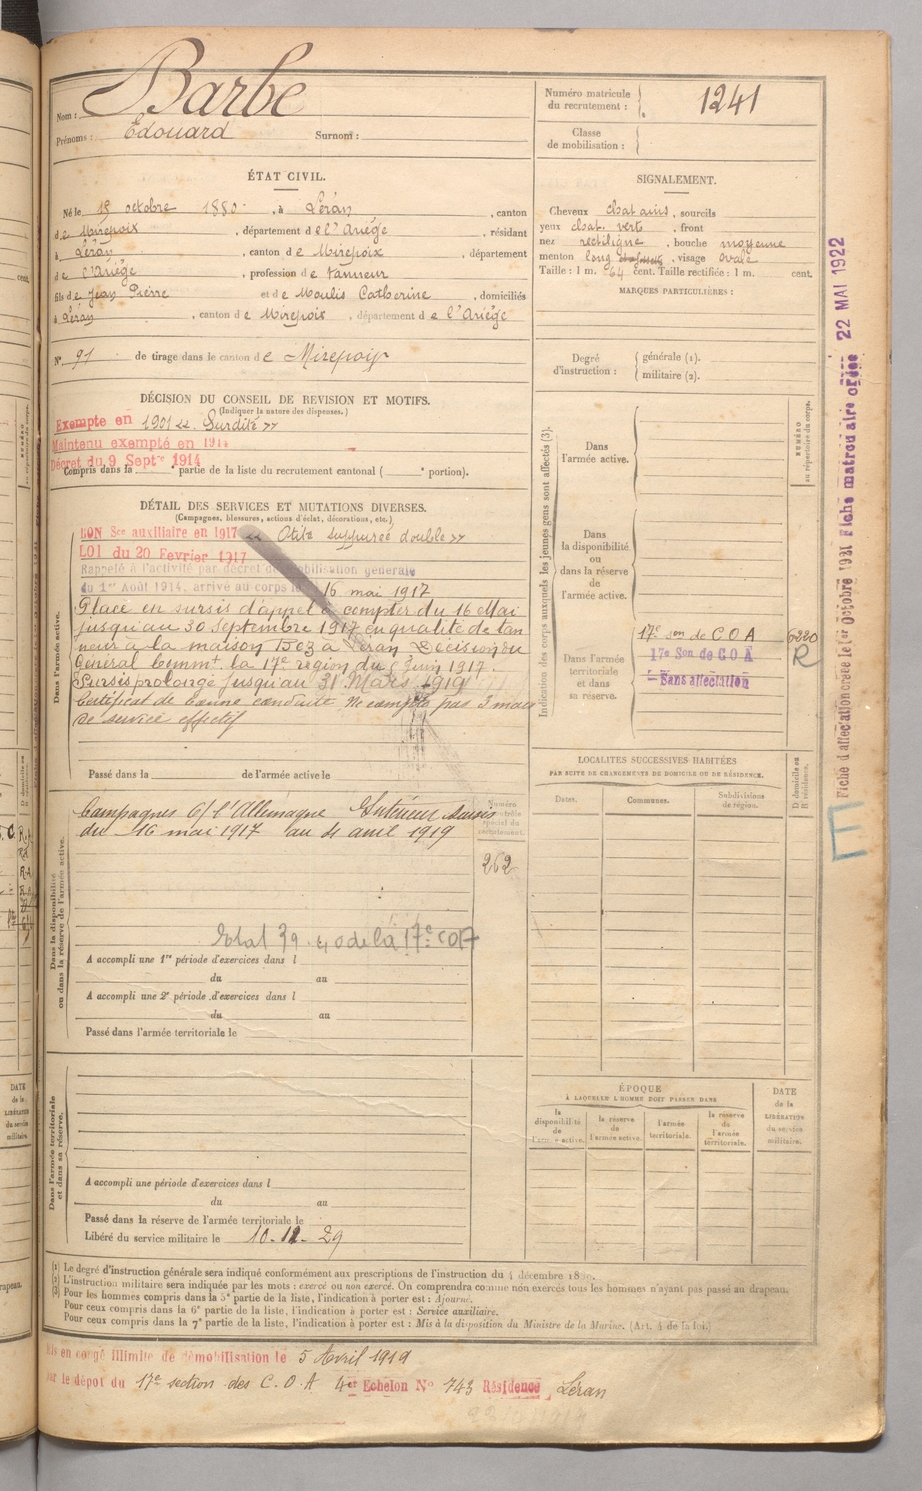 Nom : Barbe
Prénoms : Édouard Surnom :
Numéro matricule du recrutement : 1241
Classe de mobilisation :
ÉTAT CIVIL.
Né le octobre 1880, à Léran, canton
de Mirepoix, département de l'Ariège, résidant
à Léran, canton de Mirepoix, département
de l'Ariège, profession de tanneur
fils de Jean Pierre et de Moulis Catherine, domiciliés
à Léran, canton de Mirepoix, département de l'Ariège
N° 91 de tirage dans le canton de Mirepoix
SIGNALEMENT.
Cheveux chatains, sourcils
yeux chat. verts, front
nez rectiligne, bouche moyenne
menton long, visage ovale
Taille : 1 m. 64 cent. Taille rectifiée : 1 m. cent.
MARQUES PARTICULIÈRES :
Degré d'instruction : générale (1).
militaire (2).
DÉCISION DU CONSEIL DE REVISION ET MOTIFS.
(Indiquer la nature des dispenses.)
Exempté en 1901 « Surdité »
Maintenu exempté en 1914
Décret du 9 Septre 1914
Compris dans la partie de la liste du recrutement cantonal ( portion).
DÉTAIL DES SERVICES ET MUTATIONS DIVERSES.
(Campagnes, blessures, actions d'éclat, décorations, etc.)
BON Sce auxiliaire en 1917 « Otite suppurée double »
LOI du 20 Fevrier 1917
Rappelé à l'activité par décret de mobilisation générale
du 1er Août 1914, arrivé au corps le 16 mai 1917
Placé en sursis d'appel à compter du 16 Mai
jusqu'au 30 Septembre 1917 en qualité de tan
neur à la maison Bez à Léran Décision du
Général Commt. la 17e région du 6 Juin 1917.
Sursis prolongé jusqu'au 31 Mars 1919
Certificat de bonne conduite. Ne compte pas 3 mois
de service effectif
Dans l'armée active.
Passé dans la de l'armée active le
Campagnes C/ l'Allemagne Intérieur sursis
du 16 mai 1917 au 4 avril 1919
Numéro au contrôle spécial du recrutement.
262
Etat 39. 40 de la 17e COA
Dans la disponibilité ou dans la réserve de l'armée active.
A accompli une 1re période d'exercices dans l
du au
A accompli une 2e période d'exercices dans l
du au
Passé dans l'armée territoriale le
Dans l'armée territoriale et dans sa réserve.
A accompli une période d'exercices dans l
du au
Passé dans la réserve de l'armée territoriale le
Libéré du service militaire le 10.11.29
Indication des corps auxquels les jeunes gens sont affectés (3).
NUMÉRO au répertoire du corps.
Dans l'armée active.
Dans la disponibilité ou dans la réserve de l'armée active.
Dans l'armée territoriale et dans sa réserve.
17e son de COA 6220
R
17e Son de COA
Sans affectation
LOCALITÉS SUCCESSIVES HABITÉES
PAR SUITE DE CHANGEMENTS DE DOMICILE OU DE RÉSIDENCE.
Dates. Communes. Subdivisions de région. D domicile ou R résidence.
ÉPOQUE
À LAQUELLE L'HOMME DOIT PASSER DANS
la disponibilité de l'armée active. la réserve de l'armée active. l'armée territoriale. la réserve de l'armée territoriale.
DATE de la LIBÉRATION du service militaire.
Fiche d'affectation créée le 1er octobre 1921 Fiche matricu aire créée 22 MAI 1922
E
(1) Le degré d'instruction générale sera indiqué conformément aux prescriptions de l'instruction du 4 décembre
(2) L'instruction militaire sera indiquée par les mots : exercé ou non exercé. On comprendra comme non exercés tous les hommes n'ayant pas passé au drapeau.
(3) Pour les hommes compris dans la 5e partie de la liste, l'indication à porter est : Ajourné.
Pour ceux compris dans la 6e partie de la liste, l'indication à porter est : Service auxiliaire.
Pour ceux compris dans la 7e partie de la liste, l'indication à porter est : Mis à la disposition du Ministre de la Marine. (Art. 4 de la loi.)
Mis en congé illimité de démobilisation le 5 Avril 1919
par le dépôt du 17e section des C.O.A 4er Echelon N° 743 Résidence Léran